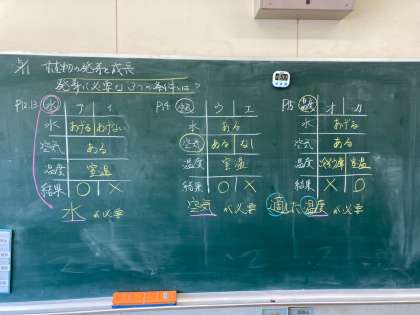 植物の発芽と成長
発芽に必要な3つの条件は?
P12.13 水 ア イ
水 あげる あげない
空気 ある
温度 室温
結果 ○ ×
水が必要
P14 空気 ウ エ
水 ある
空気 ある なし
温度 室温
結果 ○ ×
空気が必要
P15 温度 オ カ
水 あげる
空気 ある
温度 冷ぞう庫 室温
結果 × ○
適した温度が必要